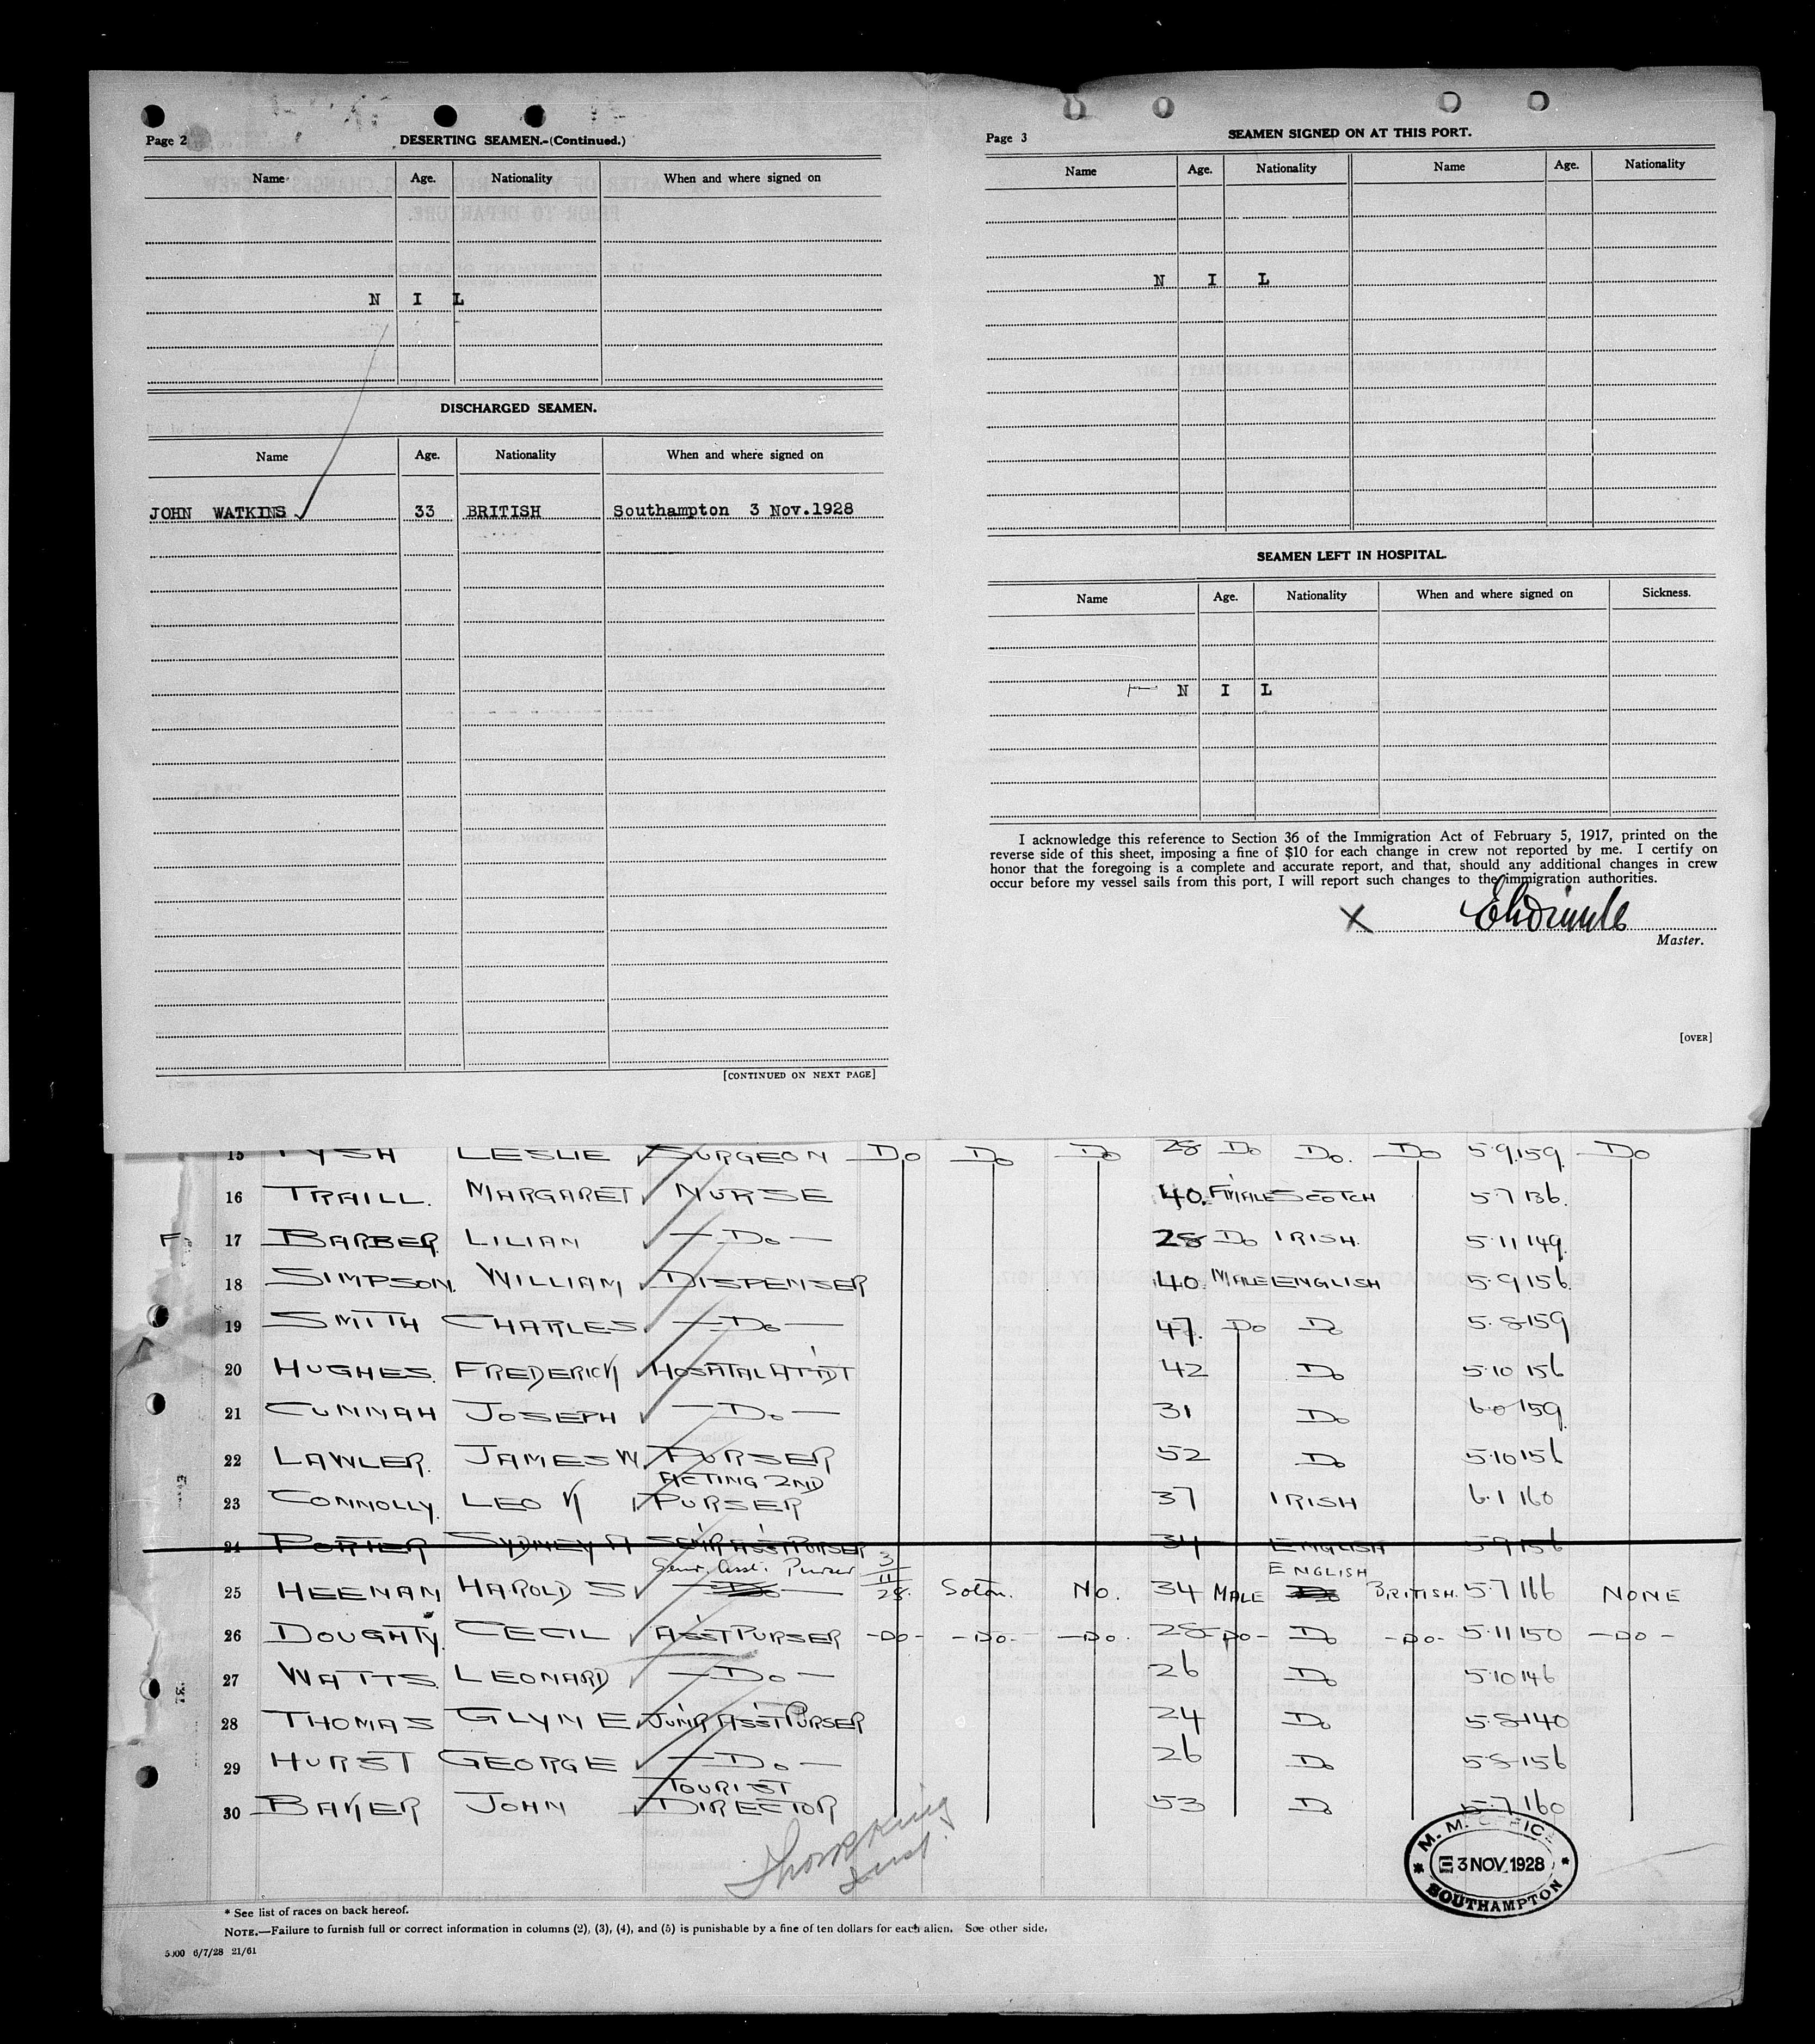 Page 2
DESERTING SEAMEN.-(Continued.)
Name Age. Nationality When and where signed on
N I L
DISCHARGED SEAMEN.
Name Age. Nationality When and where signed on
JOHN WATKINS 33 BRITISH Southampton 3 Nov.1928
[CONTINUED ON NEXT PAGE]
Page 3
SEAMEN SIGNED ON AT THIS PORT.
Name Age. Nationality Name Age. Nationality
N I L
SEAMEN LEFT IN HOSPITAL.
Name Age. Nationality When and where signed on Sickness.
N I L
I acknowledge this reference to Section 36 of the Immigration Act of February 5, 1917, printed on the
reverse side of this sheet, imposing a fine of $10 for each change in crew not reported by me. I certify on
honor that the foregoing is a complete and accurate report, and that, should any additional changes in crew
occur before my vessel sails from this port, I will report such changes to the immigration authorities.
X
Master.
[OVER]
15 TYSH LESLIE SURGEON Do Do Do 28 Do Do. Do 5·9 159 Do
16 TRAILL. MARGARET NURSE 40. F'MALE SCOTCH 5·7 136.
F 17 BARBER LILIAN —Do— 28 Do IRISH. 5·11 149.
18 SIMPSON. WILLIAM DISPENSER 40. MALE ENGLISH 5·9 156.
19 SMITH CHARLES —Do— 47. Do Do 5·8 159
20 HUGHES. FREDERICK HOSPITAL AT'DT 42 Do 5·10 156
21 CUNNAH JOSEPH —Do— 31 Do 6·0 159.
22 LAWLER. JAMES W. PURSER 52 Do 5·10 156
23 CONNOLLY. LEO K ACTING 2ND PURSER 37 IRISH 6·1 160
24 PORTER SYDNEY A SEN'R ASS'T PURSER 34 ENGLISH 5·9 156
25 HEENAN HAROLD S Senr. Asst. Purser —Do— 3/11/28. Soton. No. 34 MALE ENGLISH Do BRITISH. 5·7 166 NONE
26 DOUGHTY. CECIL ASS'T PURSER -Do- -Do- -Do. 28 -Do- Do -Do- 5·11 150 -Do-
27 WATTS. LEONARD —Do— 26 Do 5·10 146
28 THOMAS GLYN E JUN'R ASS'T PURSER 24 Do 5·8 140
29 HURST GEORGE —Do— 26 Do 5·8 156
30 BAKER JOHN TOURIST DIRECTOR 53 Do 5·7 160
M. M. OFFICE
3 NOV. 1928
SOUTHAMPTON
* See list of races on back hereof.
NOTE.—Failure to furnish full or correct information in columns (2), (3), (4), and (5) is punishable by a fine of ten dollars for each alien. See other side.
5000 6/7/28 21/61